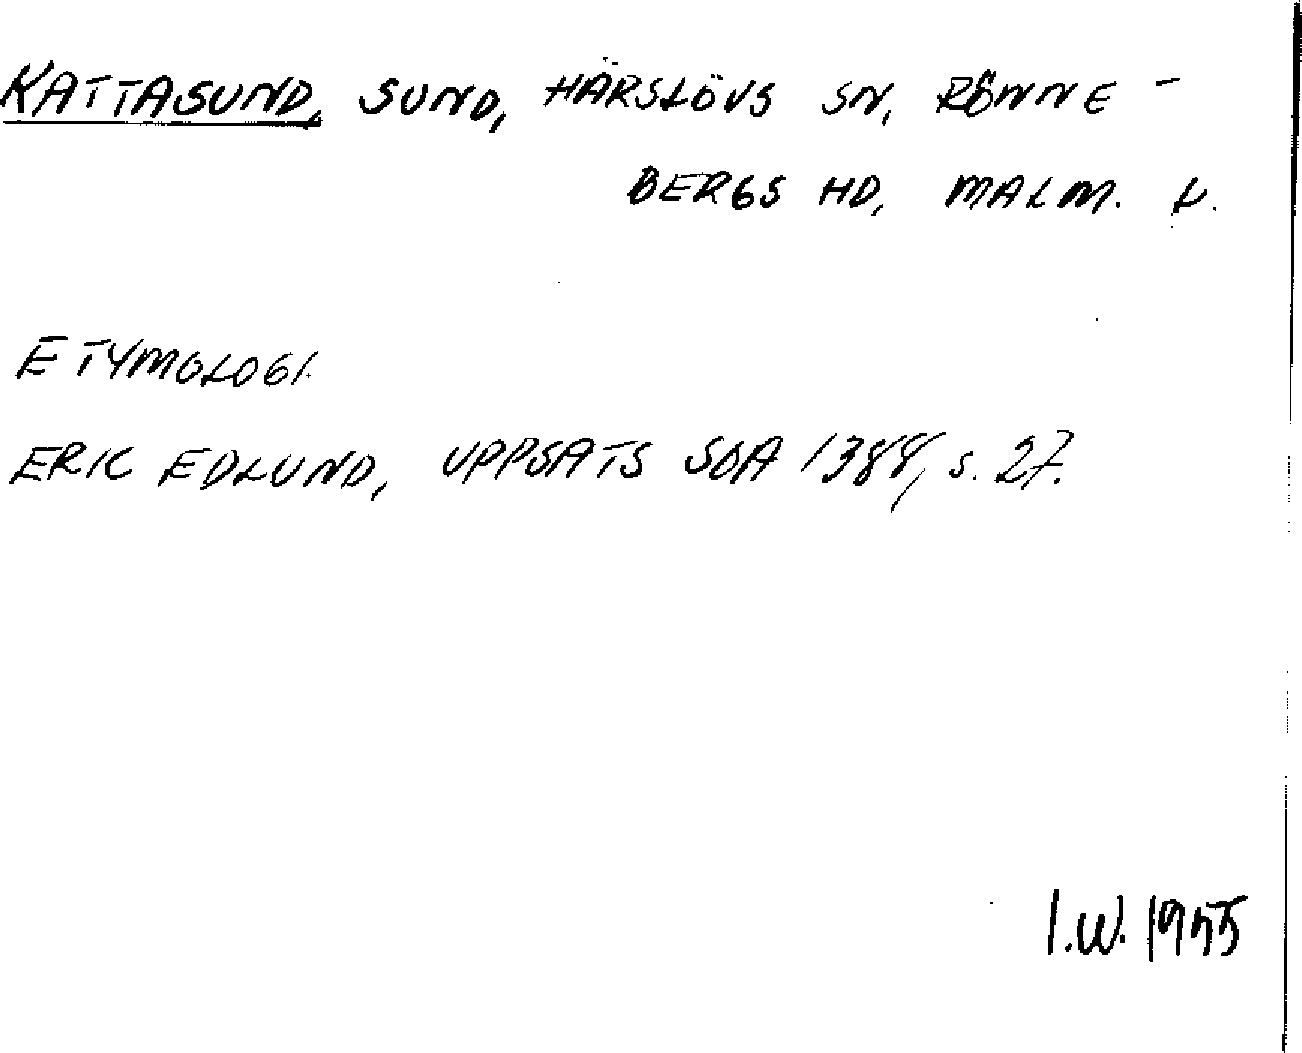 KATTASUND, SUND, HÄRSLÖVS SN, RÖNNE-
BERGS HD, MALM. L.
ETYMOLOGI.
ERIC EDLUND, UPPSATS SOA 1388, s. 27.
I.W. 1955